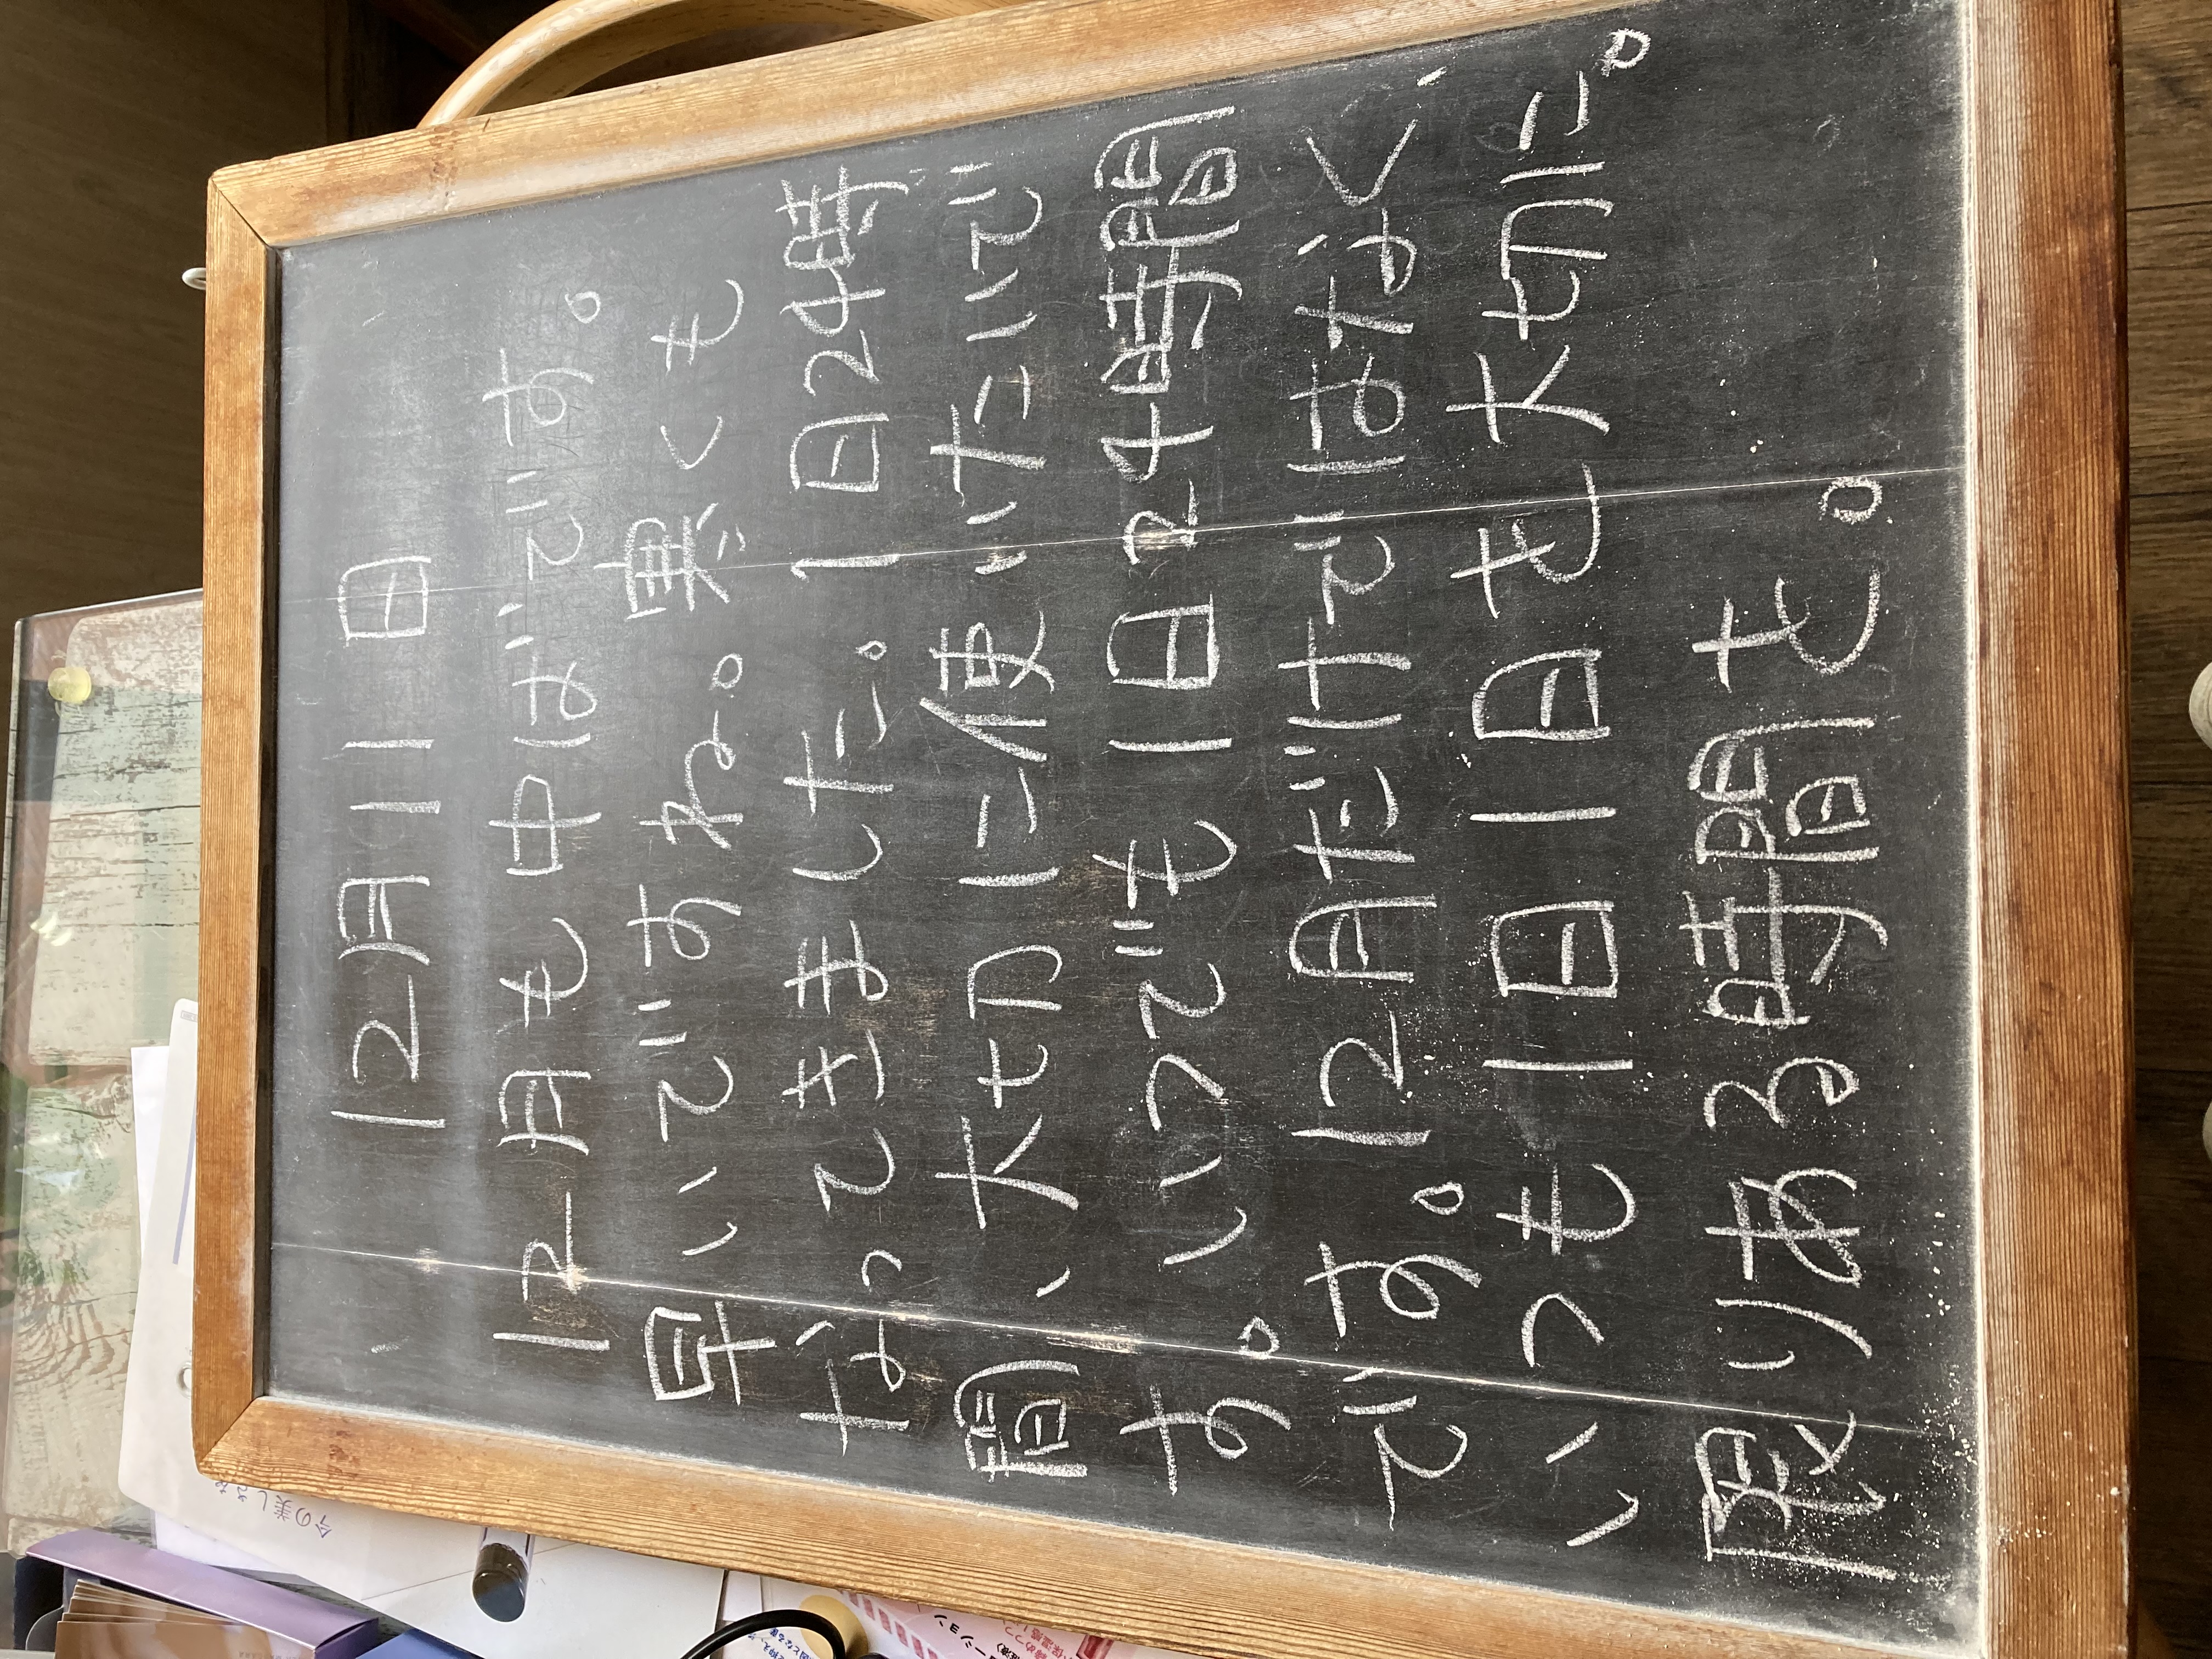 12月11日
12月も中ばです。
早いですね。寒くも
なってきました。1日24時
間、大切に使いたいで
す。いつでも1日24時間
です。12月だけではなく、
いつも1日1日を大切に。
限りある時間を。
今の美し
ーション